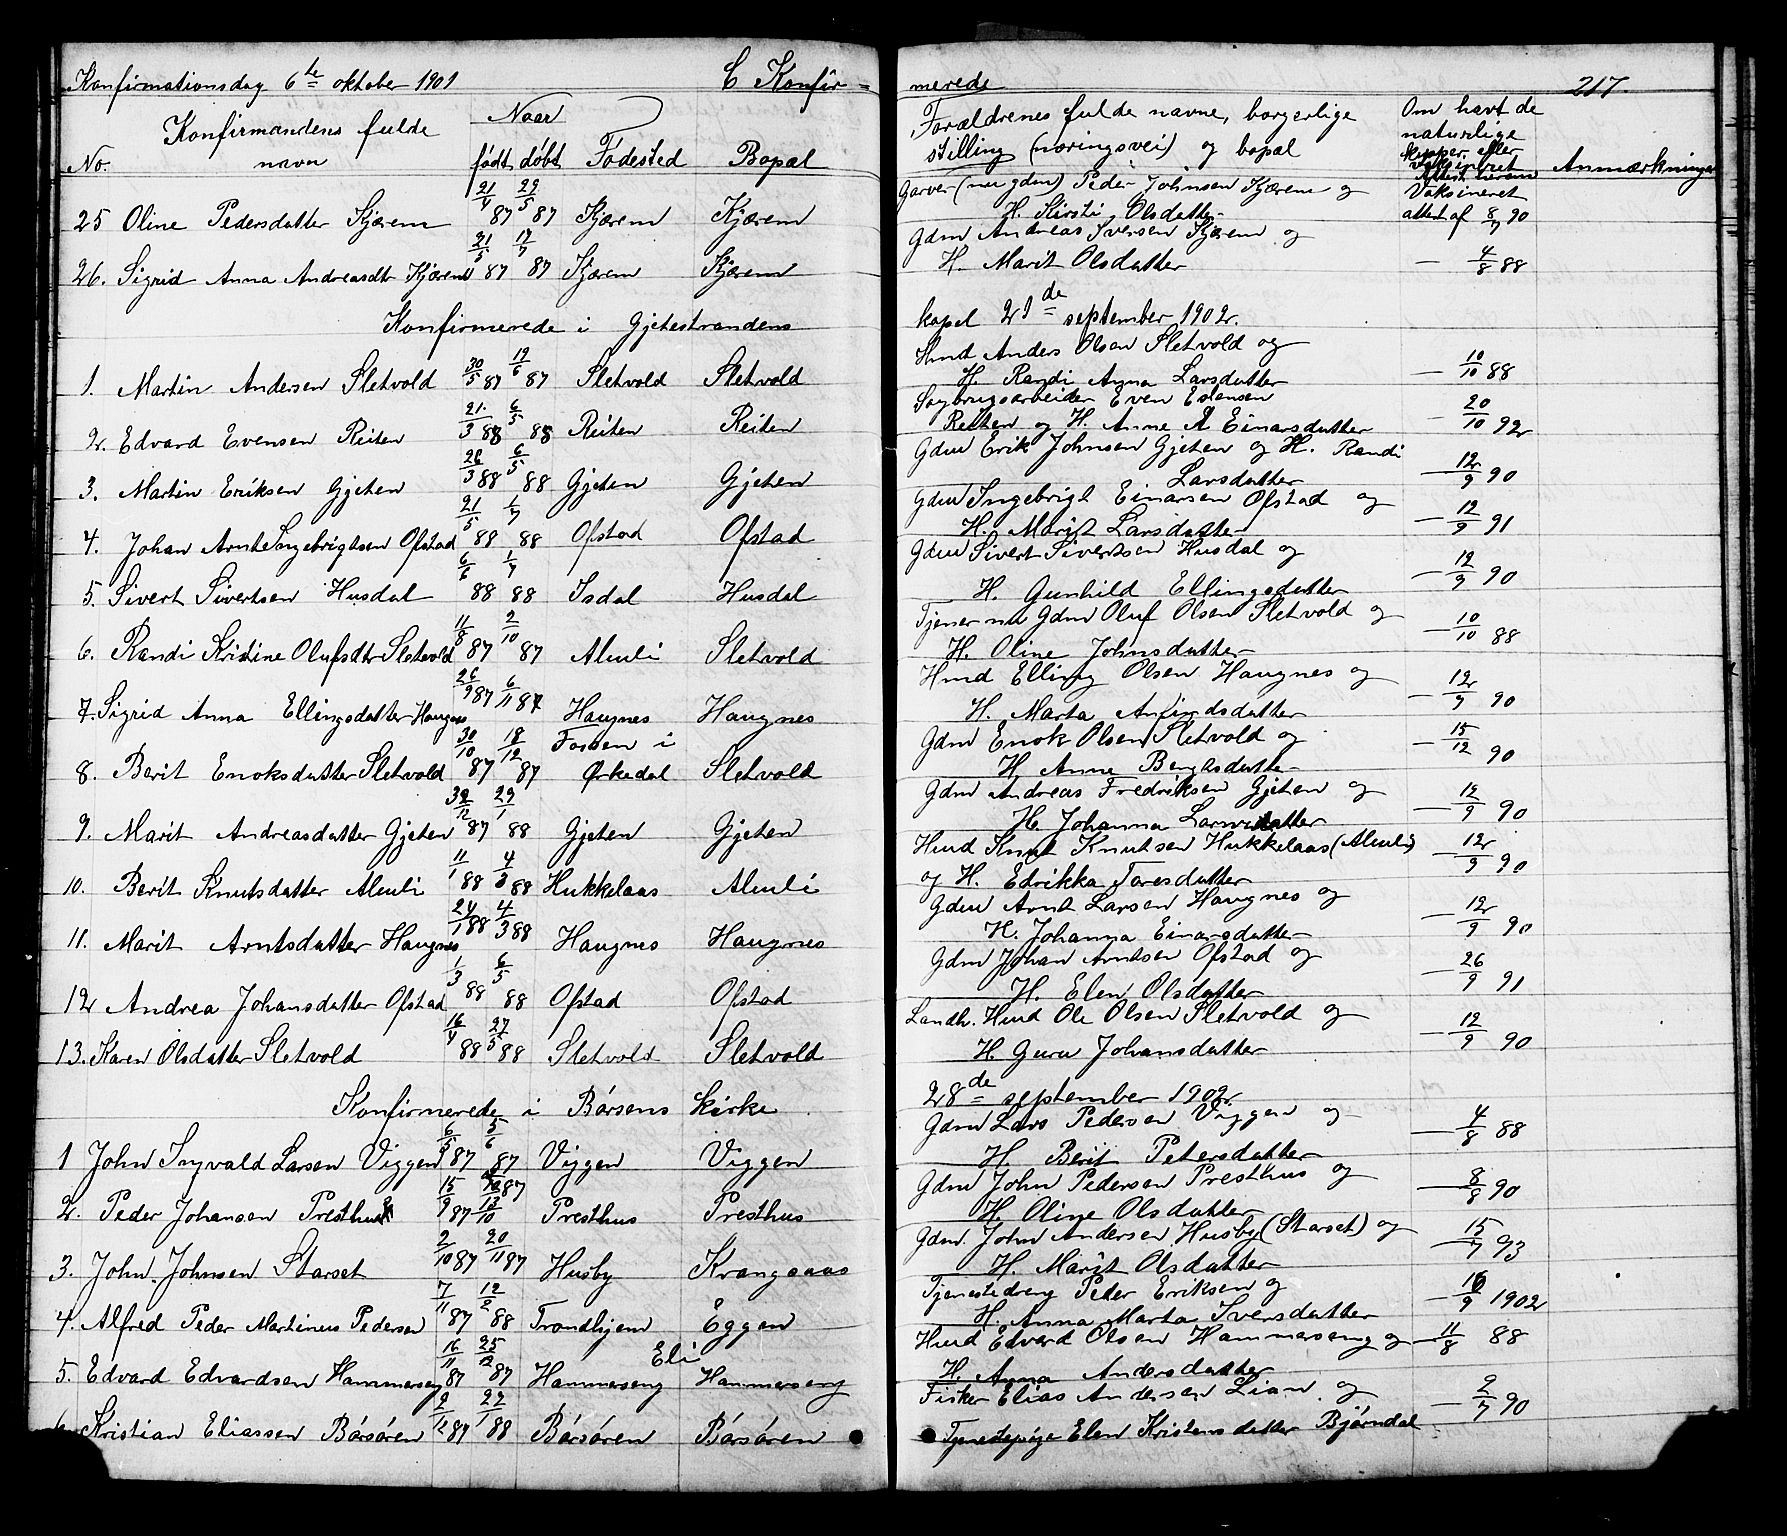 Konfirmationsdag 6te oktober 1901 C Konfir=
merede 217.
No. Konfirmandens fulde navn Naar født døbt Fødested Bopæl
Forældrenes fulde navne, borgerlige stilling (næringsvei) og bopæl
Om havt de naturlige kopper eller vaksineret
Anmærkninger
25 Oline Pedersdatter Kjærem 21/4 87 29/5 87 Kjærem Kjærem
Garver (nu gdm) Peder Johnsen Kjærem og
H. Kirsti Olsdatter
Vaksineret attest af 8/7 90
26. Sigrid Anna Andreasdt Kjærem 21/5 87 17/7 87 Kjærem Kjærem
Gdm Andreas Iversen Kjærem og
H. Marit Olsdatter — 4/8 88
Konfirmerede i Gjetestrandens
kapel 21de september 1902.
1. Martin Andersen Sletvold 30/5 87 19/6 87 Sletvold Sletvold
Hmd Anders Olsen Sletvold og
H. Randi Anna Larsdatter — 10/10 88
2. Edvard Evensen Reiten 21/3 88 6/5 88 Reiten Reiten
Sagbrugsarbeider Even Estensen
Reiten og H. Anne A Einarsdatter — 20/10 92
3. Martin Eriksen Gjeten 26/3 88 6/5 88 Gjeten Gjeten
Gdm Erik Johnsen Gjeten og H. Randi
Larsdatter — 12/9 90
4. Johan Arnt Ingebrigtsen Ofstad 21/5 88 1/7 88 Ofstad Ofstad
Gdm Ingebrigt Einarsen Ofstad og
H. Marit Larsdatter — 12/9 91
5. Sivert Sivertsen Husdal 6/6 88 1/7 88 Isdal Husdal
Gdm Sivert Sivertsen Husdal og
H. Gunhild Ellingsdatter — 12/9 90
6. Randi Kristine Olufsdtr Sletvold 11/8 87 2/10 87 Almli Sletvold
Tjener nu Gdm Oluf Olsen Sletvold og
H. Oline Johnsdatter — 10/10 88
7. Sigrid Anna Ellingsdatter Haugnes 26/9 87 6/11 87 Haugnes Haugnes
Hmd Elling Olsen Haugnes og
H. Marta Anfindsdatter — 12/9 90
8. Berit Enoksdatter Sletvold 30/10 87 18/12 87 Fossen i Ørkedal Sletvold
Gdm Enok Olsen Sletvold og
H. Anne Bengtsdatter — 15/12 90
9. Marit Andreasdatter Gjeten 87 29/1 88 Gjeten Gjeten
Gdm Andreas Fredriksen Gjeten og
H. Johanna — 12/9 90
10. Berit Knutsdatter Almli 11/1 88 4/3 88 Hukkelaas Almli
Hmd Knut Knutsen Hukkelaas (Almli)
og H. Edrikka Toresdatter — 12/9 90
11. Marit Arntsdatter Haugnes 24/1 88 4/3 88 Haugnes Haugnes
Gdm Arnt Larsen Haugnes og
H. Johanna Einarsdatter — 12/9 90
12 Andrea Johansdatter Ofstad 1/3 88 6/5 88 Ofstad Ofstad
Gdm Johan Arntsen Ofstad og
H. Elen Olsdatter — 26/9 91
13. Karen Olsdatter Sletvold 16/4 88 27/5 88 Sletvold Sletvold
Landh. Hmd Ole Olsen Sletvold og
H. Guru Johansdatter — 12/9 90
Konfirmerede i Børsens kirke
28de september 1902.
1 John Ingvald Larsen Viggen 6/5 87 5/6 87 Viggen Viggen
Gdm Lars Pedersen Viggen og
H. Berit Petersdatter — 4/8 88
2. Peder Johansen Presthus 15/9 87 87 Presthus Presthus
Gdm John Pedersen Presthus og
H. Oline Olsdatter — 8/8 90
3. John Johnsen Starset 2/10 87 20/11 87 Husby Krangsaas
Gdm. John Andersen Husby (Starset) og
H. Marit Olsdatter — 15/7 93
4. Alfred Peder Martinus Pedersen 7/11 87 12/2 88 Trondhjem Eggen
Tjenestedreng Peder Eriksen og
H. Anna Marta Iversdatter — 16/9 1902
5. Edvard Edvardsen Hammerseng 16/11 87 25/12 87 Hammerseng Eli Hammerseng
Hmd Edvard Olsen Hammerseng og
H. Anna Andersdatter — 11/8 88
6. Kristian Eliassen Børsøren 2/12 87 22/1 88 Børsøren Børsøren
Fisker Elias Andersen Lian og
Tjenestepige Elen Kristensdatter Bjørndal — 2/7 90